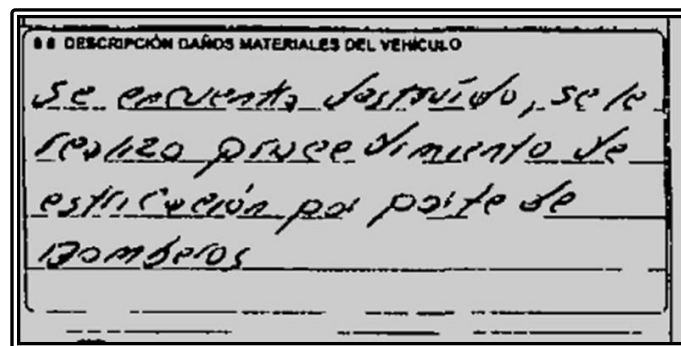 8 8 DESCRIPCIÓN DAÑOS MATERIALES DEL VEHÍCULO
Se encuentra destruído, se le
realizo procedimiento de
estricación por parte de
Bomberos